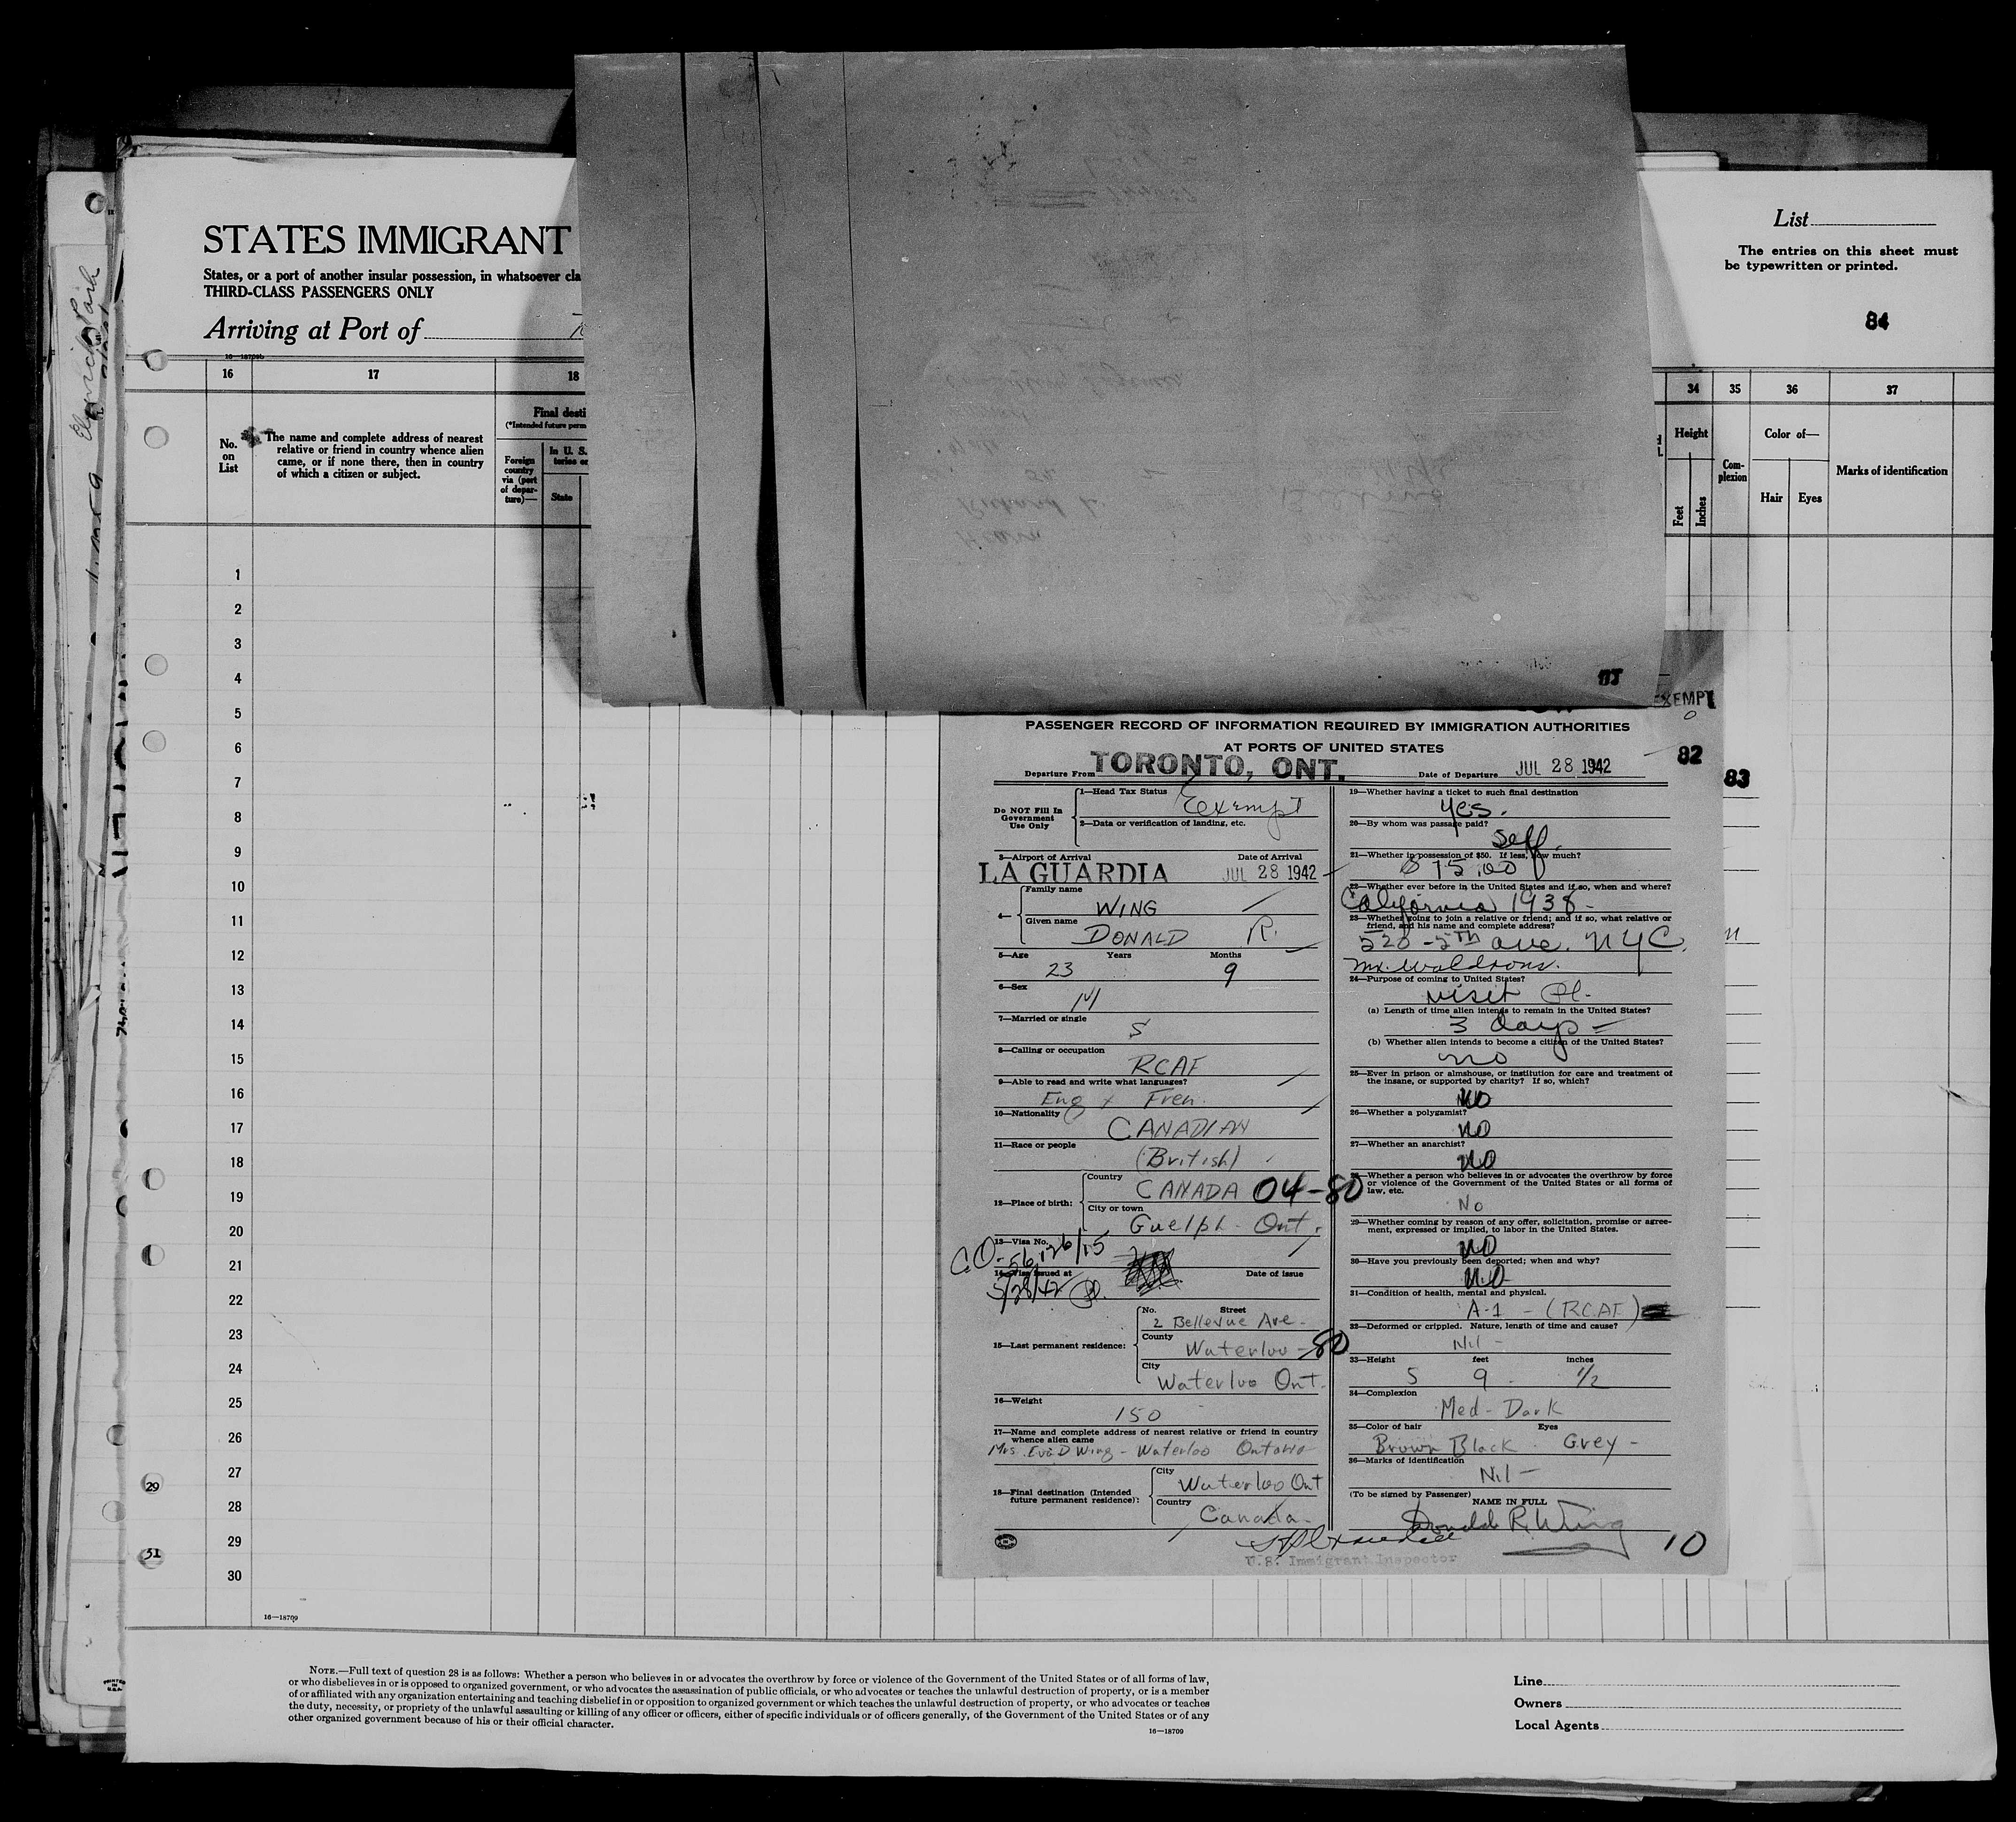 STATES IMMIGRANT
States, or a port of another insular possession, in whatsoever cla
THIRD-CLASS PASSENGERS ONLY
Arriving at Port of
List
The entries on this sheet must
be typewritten or printed.
84
16 17 18
34 35 36 37
No.
on
List
The name and complete address of nearest
relative or friend in country whence alien
came, or if none there, then in country
of which a citizen or subject.
Final desti
(*Intended future perm
Foreign
country
via (port
of depar-
ture)—
In U. S.
tories or
State
Height
Feet
Inches
Com-
plexion
Color of—
Hair Eyes
Marks of identification
1
2
3
4
5
6
7
8
9
10
11
12
13
14
15
16
17
18
19
20
21
22
23
24
25
26
27
28
29
30
29
31
16—18709
EXEMPT
82
83
PASSENGER RECORD OF INFORMATION REQUIRED BY IMMIGRATION AUTHORITIES
AT PORTS OF UNITED STATES
Departure From TORONTO, ONT. Date of Departure JUL 28 1942
Do NOT Fill In
Government
Use Only
1—Head Tax Status
Exempt
2—Data or verification of landing, etc.
3—Airport of Arrival Date of Arrival
LA GUARDIA JUL 28 1942
4— Family name
WING
Given name
DONALD R.
5—Age Years Months
23 9
6—Sex
M
7—Married or single
S
8—Calling or occupation
RCAF
9—Able to read and write what languages?
Eng + Fren.
10—Nationality
CANADIAN
11—Race or people
(British)
12—Place of birth:
Country
CANADA 04-80
City or town
Guelph - Ont.
13—Visa No.
C.O. 56,126/15
14—Visa issued at Date of issue
5/28/42
15—Last permanent residence:
No. Street
2 Bellevue Ave.
County
Waterloo - 80
City
Waterloo Ont.
16—Weight
150
17—Name and complete address of nearest relative or friend in country
whence alien came
Mrs. Eva D Wing - Waterloo Ontario
18—Final destination (Intended
future permanent residence):
City
Waterloo Ont
Country
Canada
19—Whether having a ticket to such final destination
yes.
20—By whom was passage paid?
self
21—Whether in possession of $50. If less, how much?
$75.00
22—Whether ever before in the United States and if so, when and where?
California 1938 -
23—Whether going to join a relative or friend; and if so, what relative or
friend, and his name and complete address?
520 - 5th ave. NYC.
Mr. Waldrons.
24—Purpose of coming to United States?
visit Pl.
(a) Length of time alien intends to remain in the United States?
3 days
(b) Whether alien intends to become a citizen of the United States?
no
25—Ever in prison or almshouse, or institution for care and treatment of
the insane, or supported by charity? If so, which?
NO
26—Whether a polygamist?
NO
27—Whether an anarchist?
NO
28—Whether a person who believes in or advocates the overthrow by force
or violence of the Government of the United States or all forms of
law, etc.
No
29—Whether coming by reason of any offer, solicitation, promise or agree-
ment, expressed or implied, to labor in the United States.
NO
30—Have you previously been deported; when and why?
NO
31—Condition of health, mental and physical.
A-1 - (RCAF)
32—Deformed or crippled. Nature, length of time and cause?
Nil -
33—Height feet inches
5 9 1/2
34—Complexion
Med - Dark
35—Color of hair Eyes
Brown Black Grey -
36—Marks of identification
Nil -
(To be signed by Passenger)
NAME IN FULL
Donald R. Wing
U.S. Immigrant Inspector
10
NOTE.—Full text of question 28 is as follows: Whether a person who believes in or advocates the overthrow by force or violence of the Government of the United States or of all forms of law,
or who disbelieves in or is opposed to organized government, or who advocates the assassination of public officials, or who advocates or teaches the unlawful destruction of property, or is a member
of or affiliated with any organization entertaining and teaching disbelief in or opposition to organized government or which teaches the unlawful destruction of property, or who advocates or teaches
the duty, necessity, or propriety of the unlawful assaulting or killing of any officer or officers, either of specific individuals or of officers generally, of the Government of the United States or of any
other organized government because of his or their official character.
16—18709
Line
Owners
Local Agents